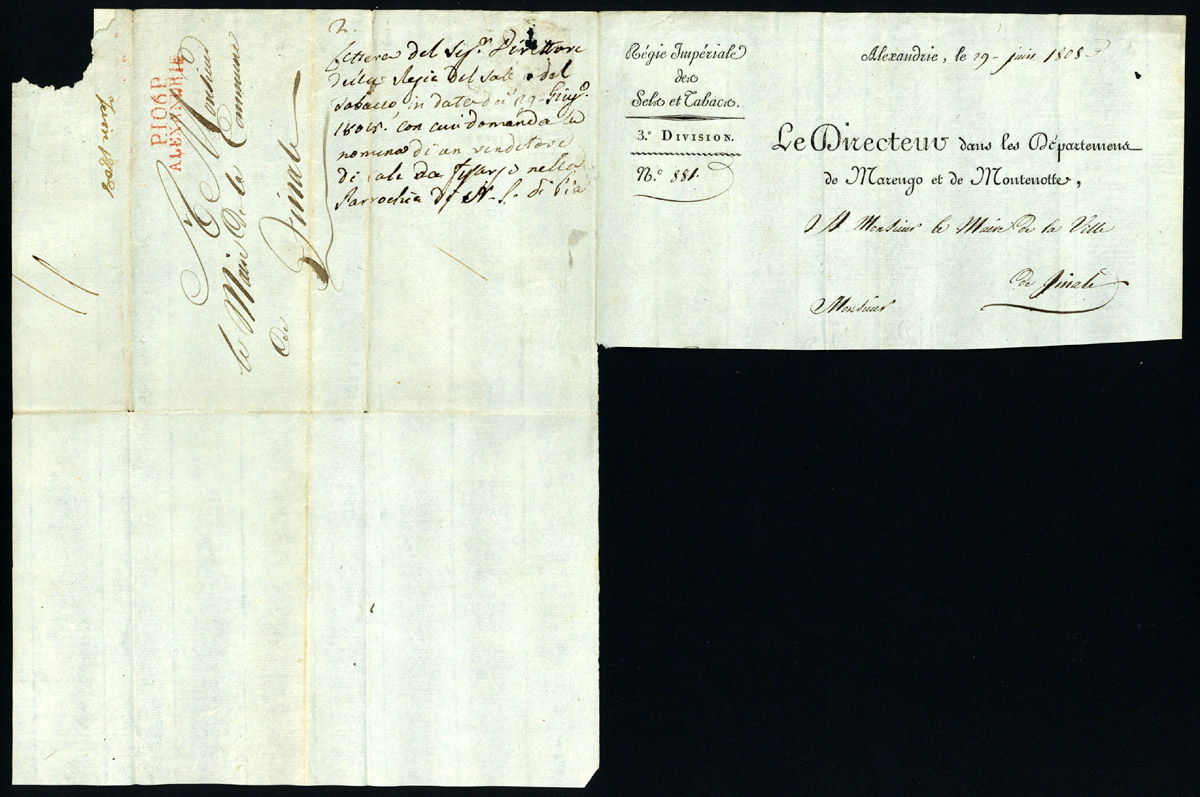 P106P
ALEXANDRIE
A Monsieur
le Maire de la Commune
de
Finale
Lettera del Sig.r Direttore
della Regia del Sale e del
Tabacco in data dei 29. Giug.o
1808. con cui domanda la
nomina di un venditore
di sale da
nella
Parrochia di N. S. di Pia
Régie Impériale
des
Sels et Tabacs.
3.e DIVISION.
N.o 881.
Alexandrie, le 29 juin 1808
Le Directeur dans les Départemens
de Marengo et de Montenotte,
A Monsieur le Maire de la Ville
de Finale
Monsieur